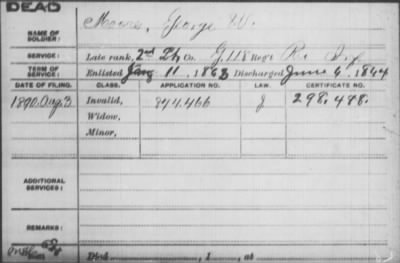 DEAD
NAME OF SOLDIER: Moore, George W.
SERVICE: Late rank, 2nd Lt Co. G, 118 Reg't
TERM OF SERVICE: Enlisted 11, 1863 Discharged June 6, 1864
DATE OF FILING. CLASS. APPLICATION NO. LAW. CERTIFICATE NO.
1890. Aug. 3 Invalid, 844.466 J 298.478.
Widow,
Minor,
ADDITIONAL SERVICES:
REMARKS:
Died , 1 , at